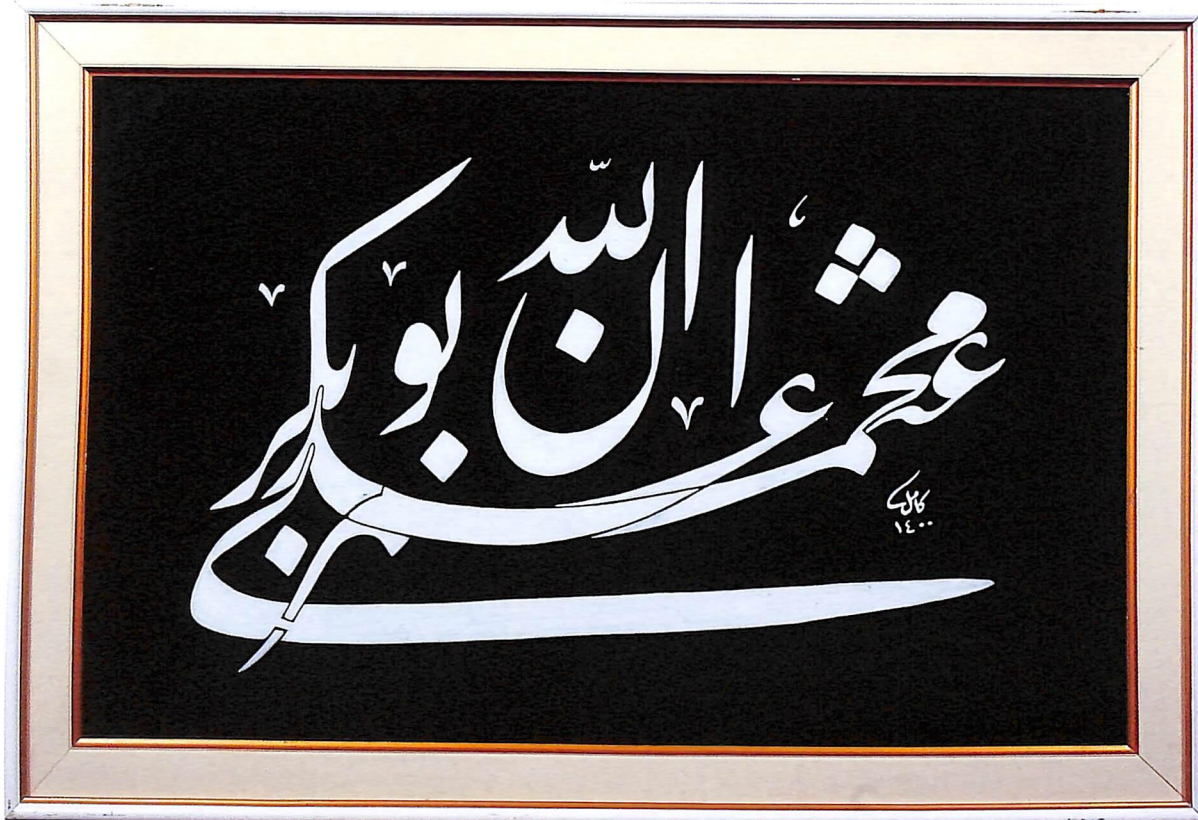 الله
محمد
ابوبكر
عمر
عثمان
علی
كامل
١٤٠٠